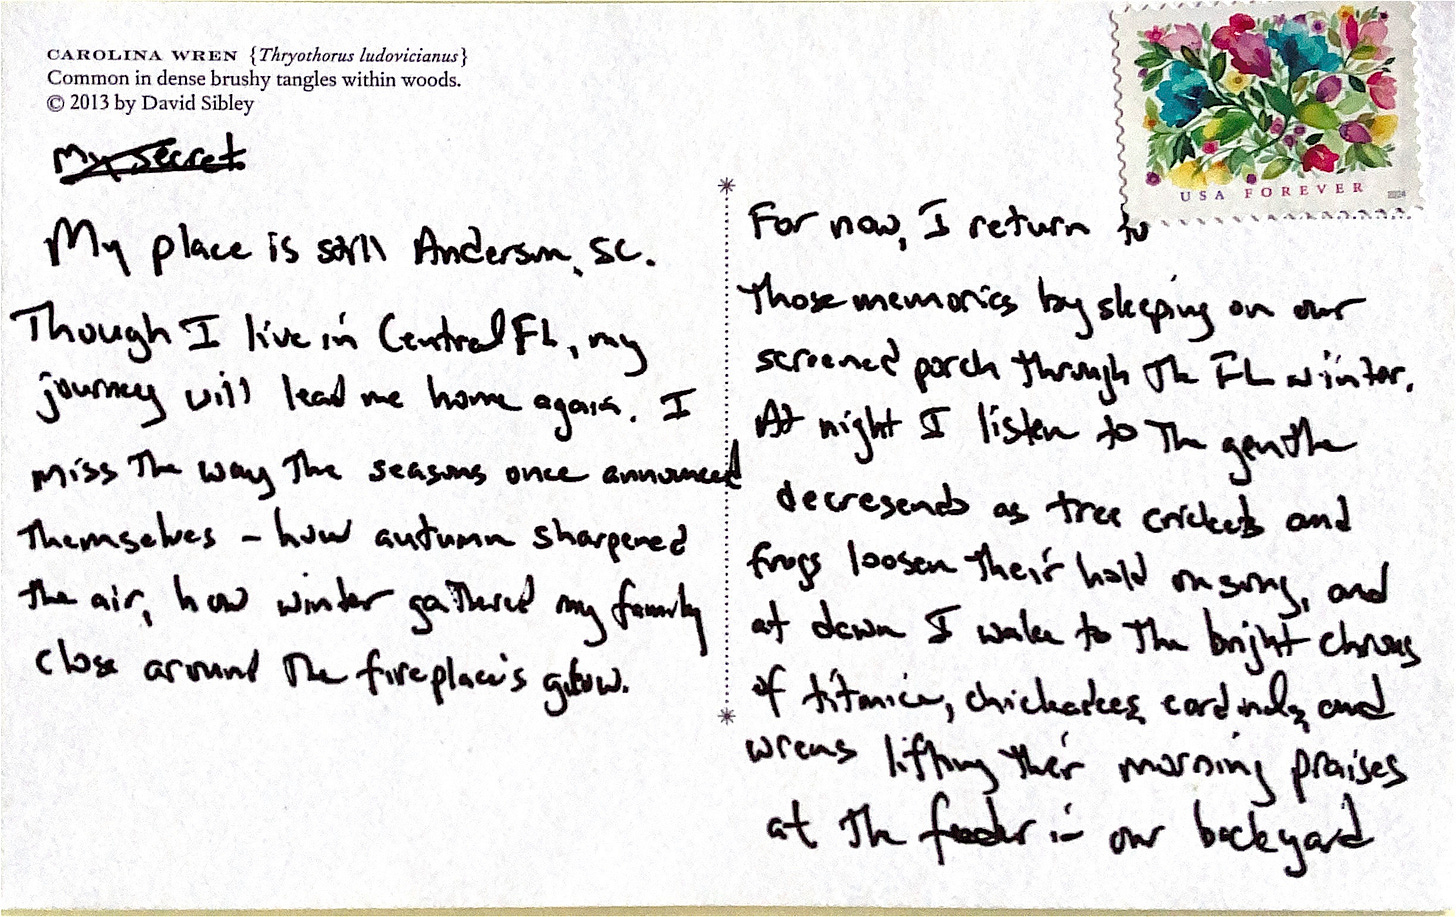 CAROLINA WREN {Thryothorus ludovicianus}
Common in dense brushy tangles within woods.
© 2013 by David Sibley
My secret
My place is still Anderson, SC.
Though I live in Central FL, my
journey will lead me home again. I
miss the way the seasons once announced
themselves – how autumn sharpened
the air, how winter gathered my family
close around the fireplace's glow.
USA FOREVER
2024
For now, I return to
those memories by sleeping on our
screened porch through the FL winter.
At night I listen to the gentle
decresends as tree crickets and
frogs loosen their hold on song, and
at dawn I wake to the bright chorus
of titmice, chickadees, cardinals, and
wrens lifting their morning praises
at the feeder in our backyard